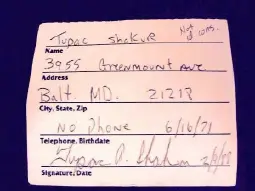 Tupac Shakur
Not
Name
3955 Greenmount Ave.
Address
Balt MD. 21218
City, State, Zip
No Phone 6/16/71
Telephone, Birthdate
Tupac A. Shakur
Signature, Date